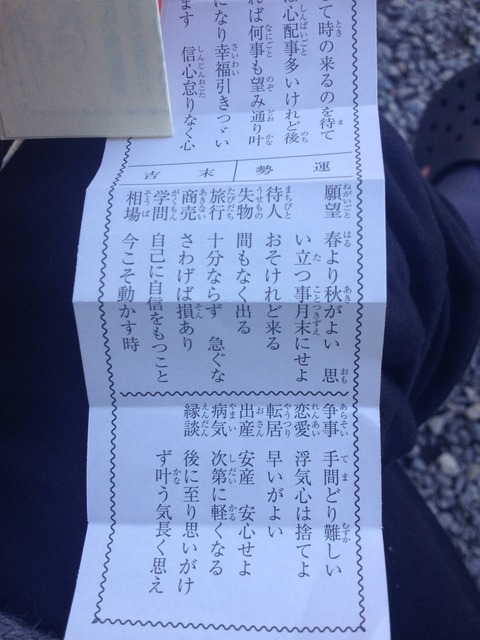 て時の来るのを待て
は心配事多いけれど後
れば何事も望み通り叶
になり幸福引きつゞい
ます 信心怠りなく心
運勢 末吉
願望 春より秋がよい 思
い立つ事月末にせよ
待人 おそけれど来る
失物 間もなく出る
旅行 十分ならず 急ぐな
商売 さわげば損あり
学問 自己に自信をもつこと
相場 今こそ動かす時
争事 手間どり難しい
恋愛 浮気心は捨てよ
転居 早いがよい
出産 安産 安心せよ
病気 次第に軽くなる
縁談 後に至り思いがけ
ず叶う気長く思え